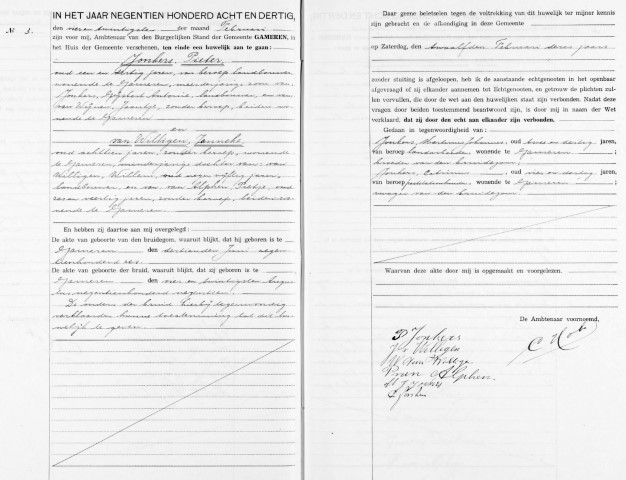 № 3.
IN HET JAAR NEGENTIEN HONDERD ACHT EN DERTIG,
den vier en twintigsten der maand Februari
zijn voor mij, Ambtenaar van den Burgerlijken Stand der Gemeente GAMEREN, in
het Huis der Gemeente verschenen, ten einde een huwelijk aan te gaan:
Jonkers, Pieter
oud een en dertig jaren, van beroep landbouwer
wonende te Gameren, meerderjarige zoon van
Jonkers, Antonie, landbouwer, en van
van zonder beroep, beiden wo-
nende te Gameren
en
van Willigen, Janneke
oud achttien jaren, zonder beroep, wonende
te Gameren, minderjarige dochter van: van
Willigen, Willem, oud negen vijftig jaren,
landbouwer, en van van Alphen, oud
veertig jaren, zonder beroep, beiden wo-
nende te Gameren.
En hebben zij daartoe aan mij overgelegd:
De akte van geboorte van den bruidegom, waaruit blijkt, dat hij geboren is te
Gameren den dertienden Juni negen-
tienhonderd zes.
De akte van geboorte der bruid, waaruit blijkt, dat zij geboren is te
Gameren den vier en twintigsten Augus-
tus negentienhonderd negentien.
De ouders der bruid hierbij tegenwoordig
verklaarden hunne toestemming tot dit hu-
welijk te geven.
Daar geene beletselen tegen de voltrekking van dit huwelijk ter mijner kennis
zijn gebracht en de afkondiging in deze Gemeente
op Zaterdag, den twaalfden Februari dezes jaars
zonder stuiting is afgeloopen, heb ik de aanstaande echtgenooten in het openbaar
afgevraagd of zij elkander aannemen tot Echtgenooten, en getrouw de plichten zul-
len vervullen, die door de wet aan den huwelijken staat zijn verbonden. Nadat deze
vragen door beiden toestemmend beantwoord zijn, is door mij in naam der Wet
verklaard, dat zij door den echt aan elkander zijn verbonden.
Gedaan in tegenwoordigheid van:
Jonkers, Johannes, oud twee en dertig, jaren,
van beroep landarbeider, wonende te Gameren,
broeder van den bruidegom,
Jonkers, oud vier en dertig, jaren,
van beroep wonende te Gameren,
zwager van den bruidegom,
Waarvan deze akte door mij is opgemaakt en voorgelezen.
De Ambtenaar voornoemd,
P Jonkers
J v Willigen
W van Willigen
P van Alphen.
Jonkers
Jonkers